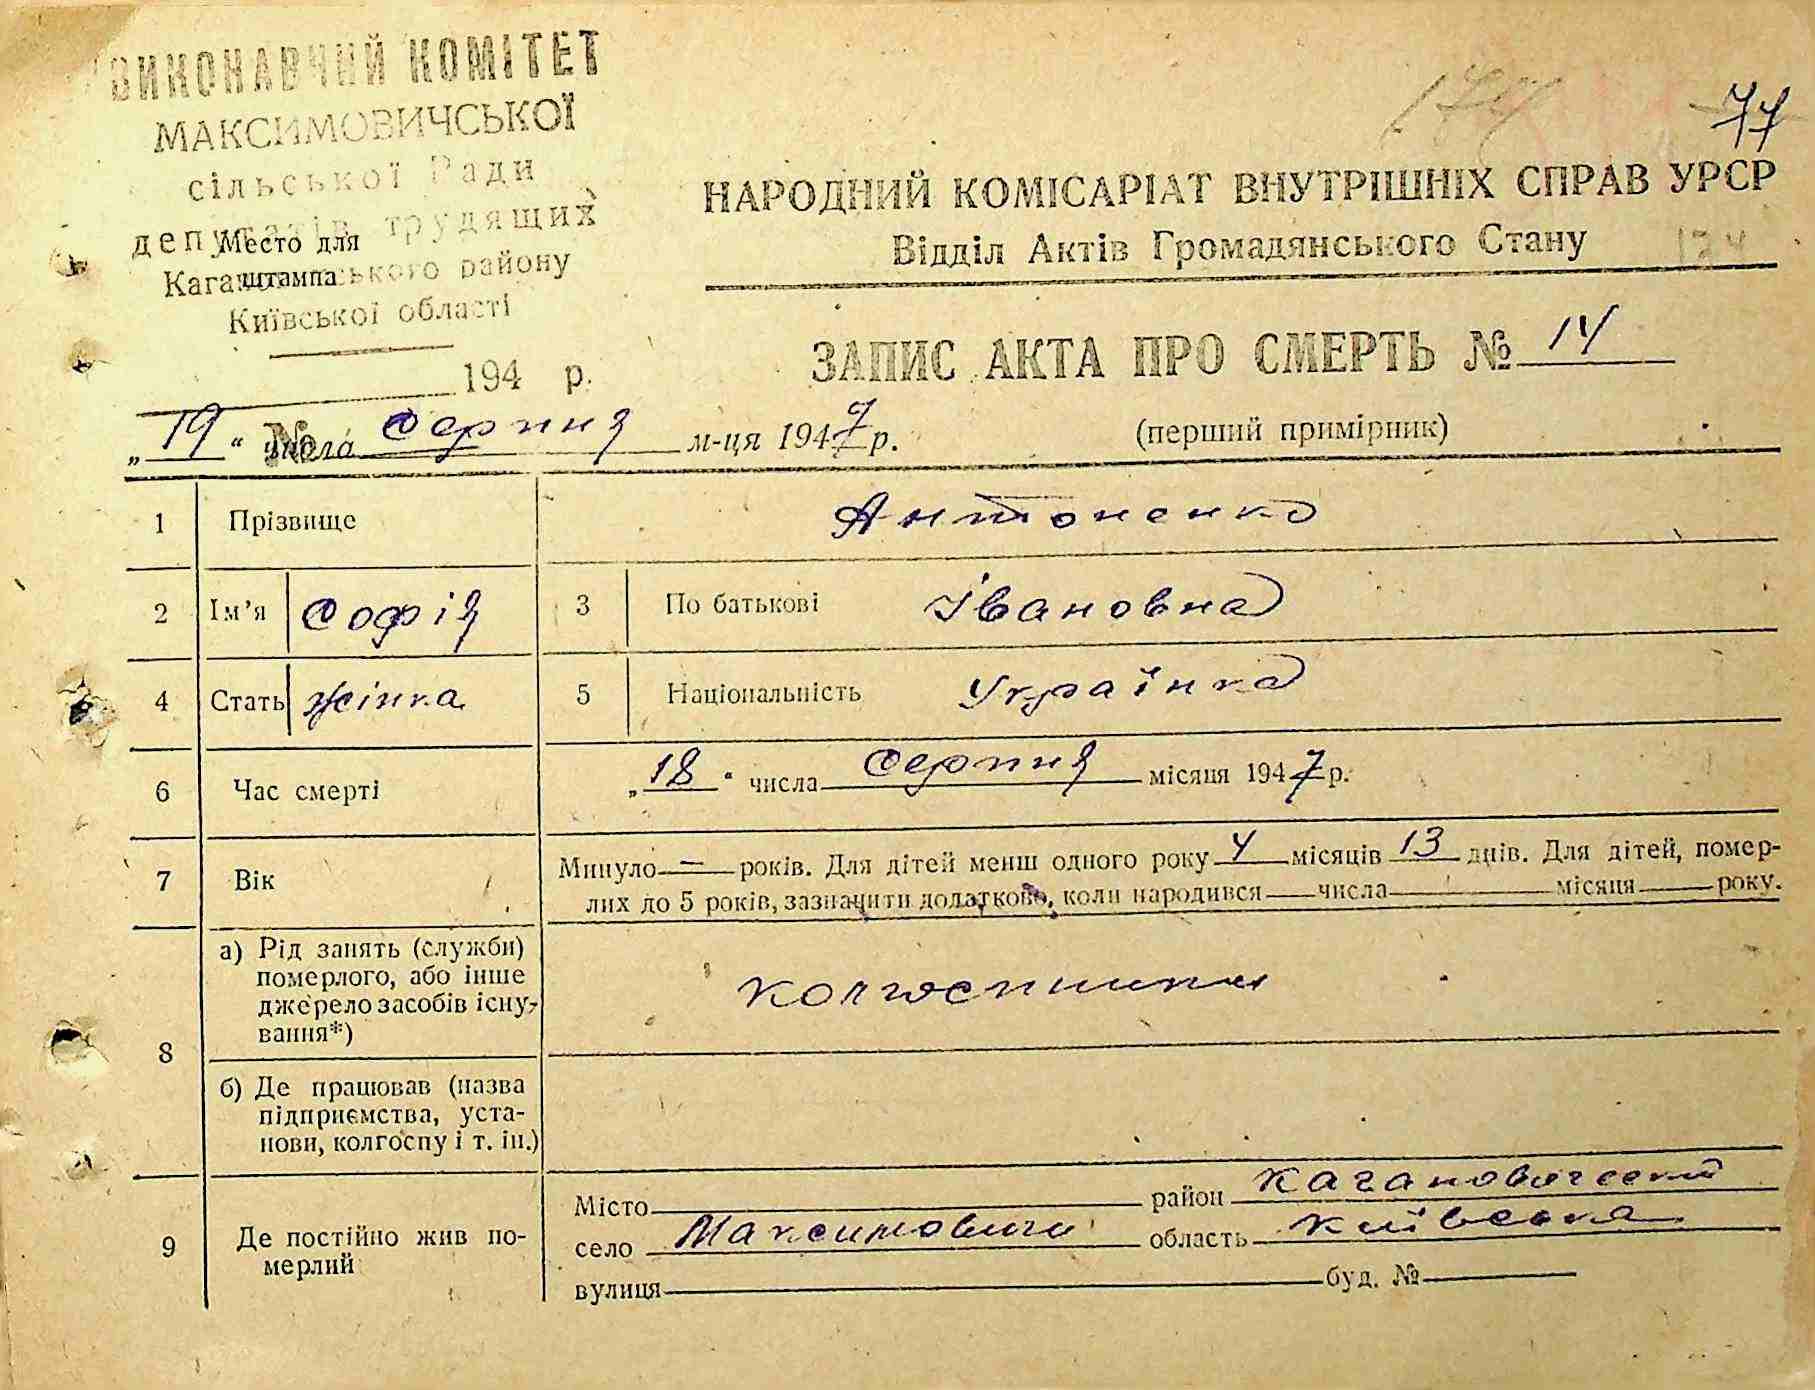 ВИКОНАВЧИЙ КОМІТЕТ
МАКСИМОВИЧСЬКОЇ
сільської Ради
депутатів трудящих
Место для
штампа
району
Київської області
194 р.
№
77
174
НАРОДНИЙ КОМІСАРІАТ ВНУТРІШНІХ СПРАВ УРСР
Відділ Актів Громадянського Стану
ЗАПИС АКТА ПРО СМЕРТЬ № 14
„19“ числа Серпня м-ця 1947 р.
(перший примірник)
1 Прізвище Антоненко
2 Ім'я Софія 3 По батькові Івановна
4 Стать жінка 5 Національність Українка
6 Час смерті „18“ числа Серпня місяця 1947 р.
7 Вік Минуло — років. Для дітей менш одного року 4 місяців 13 днів. Для дітей, помер-
лих до 5 років, зазначити додатково, коли народився числа місяця року.
8 а) Рід занять (служби)
померлого, або інше
джерело засобів існу-
вання*)
колгоспники
б) Де працював (назва
підприємства, уста-
нови, колгоспу і т. ін.)
9 Де постійно жив по-
мерлий
Місто район
село Максимовичи область Київська
вулиця буд. №